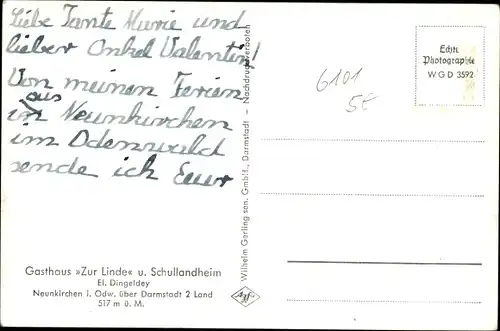 Liebe Tante Marie und
lieber Onkel Valentin!
Von meinen Ferien
aus
in Neunkirchen
im Odenwald
sende ich Euer
Gasthaus »Zur Linde« u. Schullandheim
El. Dingeldey
Neunkirchen i. Odw. über Darmstadt 2 Land
517 m ü. M.
Wilhelm Gerling sen. GmbH., Darmstadt – Nachdruck verboten
Agfa
6101
5E
Echte
Photographie
WGD 3592